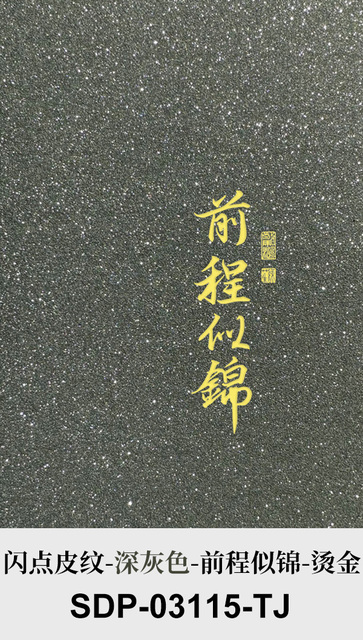 前程似錦
闪点皮纹-深灰色-前程似锦-烫金
SDP-03115-TJ